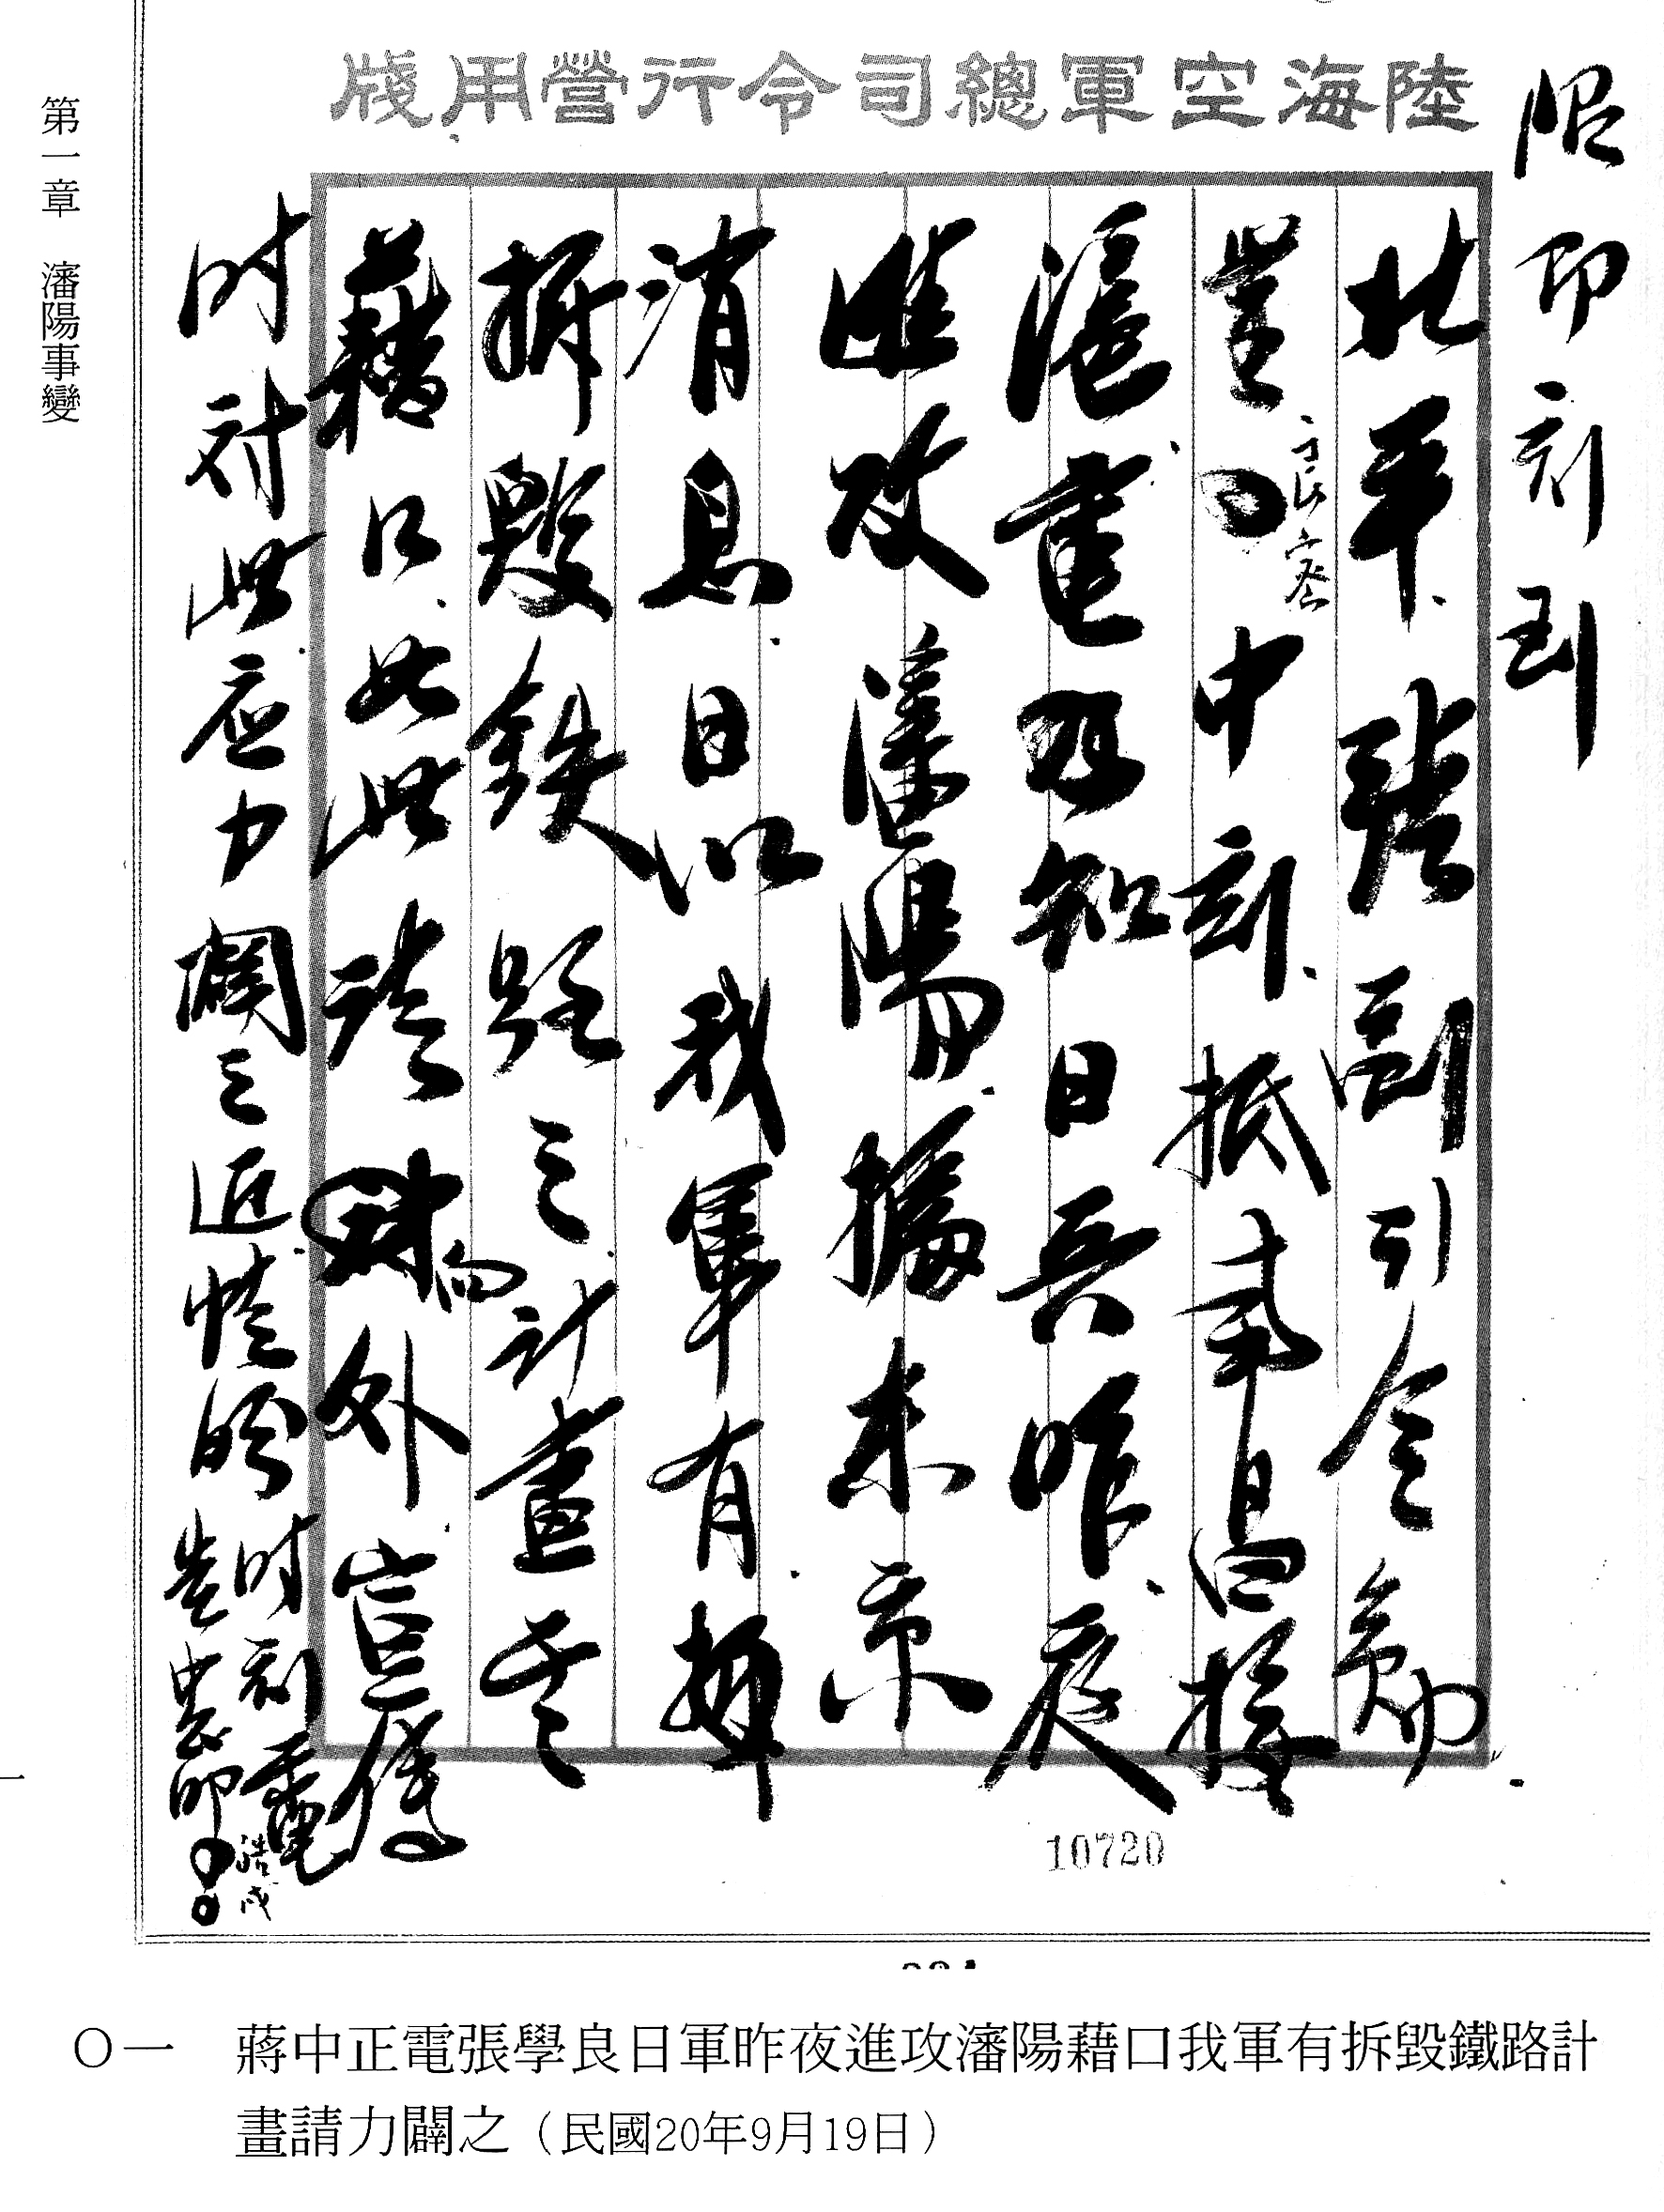 第一章 瀋陽事變
陸海空軍總司令行營用牋
限即刻到
北平.張副司令勛
鑒 良密 中刻.抵南昌接
滬電 知日兵昨.夜
進攻瀋陽.據東京
消息.日以我軍有
拆毀鉄路之.計畫其
藉口.如此請向外宣傳
时對此.应力闢之近情盼
时刻電告 中正叩
皓戌
10720
一
〇一 蔣中正電張學良日軍昨夜進攻瀋陽藉口我軍有拆毀鐵路計
畫請力闢之（民國20年9月19日）